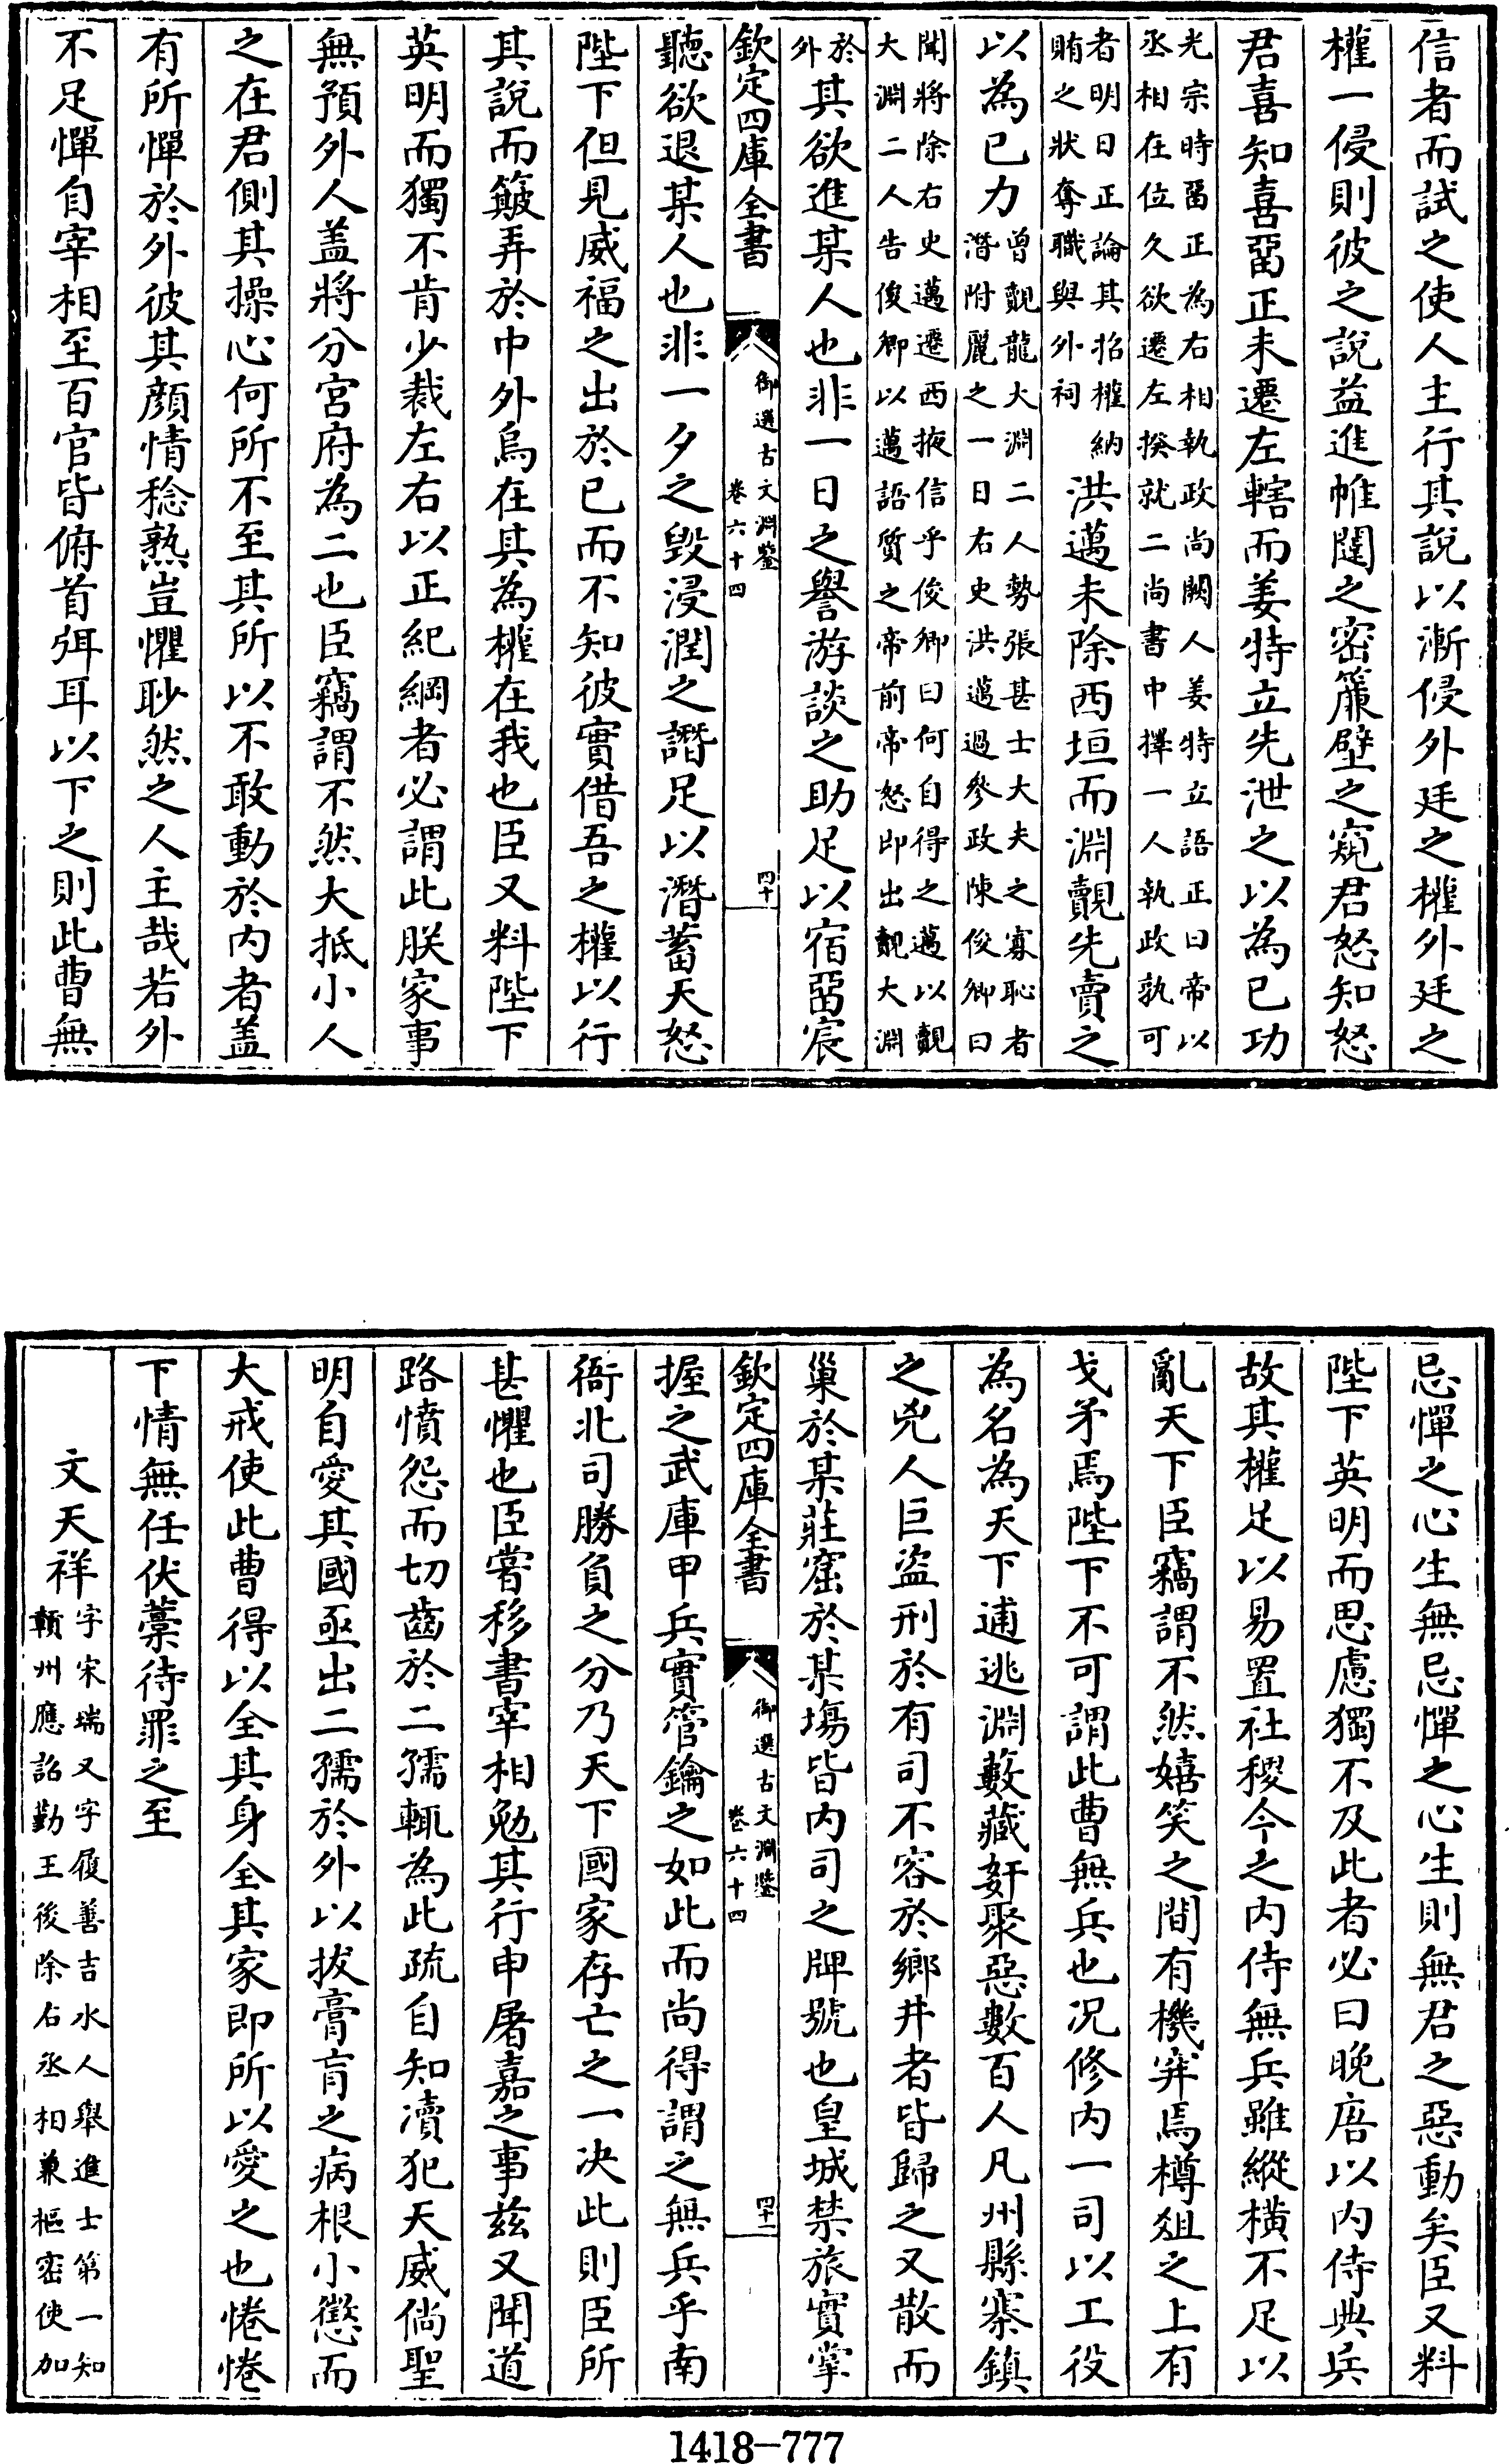 信者而試之使人主行其說以漸侵外廷之權外廷之
權一侵則彼之說益進帷闥之密簾壁之窺君怒知怒
君喜知喜畱正未遷左轄而姜特立先泄之以為已功
光宗時畱正為右相執政尚闕人姜特立語正曰帝以
丞相在位久欲遷左揆就二尚書中擇一人執政孰可
者明日正論其招權納
賄之狀奪職與外祠
洪邁未除西垣而淵覿先賣之
以為已力
曾覿龍大淵二人勢張甚士大夫之寡恥者
潛附麗之一日右史洪邁過參政陳俊卿曰
聞將除右史邁遷西掖信乎俊卿曰何自得之邁以覿
大淵二人告俊卿以邁語質之帝前帝怒即出覿大淵
於
外
其欲進某人也非一日之譽游談之助足以宿畱宸
欽定四庫全書
御選古文淵鑒
卷六十四
四十
聽欲退某人也非一夕之毀浸潤之譖足以潛蓄天怒
陛下但見威福之出於已而不知彼實借吾之權以行
其說而簸弄於中外烏在其為權在我也臣又料陛下
英明而獨不肯少裁左右以正紀綱者必謂此朕家事
無預外人盖將分宮府為二也臣竊謂不然大抵小人
之在君側其操心何所不至其所以不敢動於內者盖
有所憚於外彼其顏情稔熟豈懼眇然之人主哉若外
不足憚自宰相至百官皆俯首弭耳以下之則此曹無
忌憚之心生無忌憚之心生則無君之惡動矣臣又料
陛下英明而思慮獨不及此者必曰晚唐以內侍典兵
故其權足以易置社稷今之內侍無兵雖縱橫不足以
亂天下臣竊謂不然嬉笑之間有機穽焉樽俎之上有
戈矛焉陛下不可謂此曹無兵也况修內一司以工役
為名為天下逋逃淵藪藏奸聚惡數百人凡州縣寨鎮
之兇人巨盜刑於有司不容於鄉井者皆歸之又散而
巢於某莊窟於某塲皆內司之牌號也皇城禁旅實掌
欽定四庫全書
御選古文淵鑒
卷六十四
四十一
握之武庫甲兵實管鑰之如此而尚得謂之無兵乎南
衙北司勝負之分乃天下國家存亡之一决此則臣所
甚懼也臣嘗移書宰相勉其行申屠嘉之事兹又聞道
路憤怨而切齒於二孺輒為此疏自知瀆犯天威倘聖
明自愛其國亟出二孺於外以拔膏肓之病根小懲而
大戒使此曹得以全其身全其家即所以愛之也惓惓
下情無任伏藁待罪之至
文天祥
字宋瑞又字履善吉水人舉進士第一知
贑州應詔勤王後除右丞相兼樞密使加
1418-777